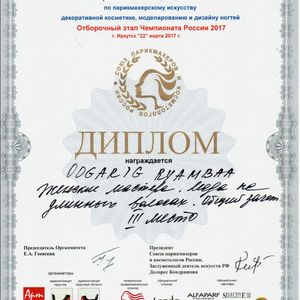 по парикмахерскому искусству
декоративной косметике, моделированию и дизайну ногтей
Отборочный этап Чемпионата России 2017
г. Иркутск "22" марта 2017 г.
СОЮЗ ПАРИКМАХЕРОВ И КОСМЕТОЛОГОВ РОССИИ
ДИПЛОМ
награждается
ODGARIG BYAMBAA
Женские мастера. Мода на
длинных волосах. Общий зачет
III место
Председатель Оргкомитета
Е.А. Геевская
Президент
Союза парикмахеров
и косметологов России,
Заслуженный деятель искусств РФ
Долорес Кондрашова
организаторы
ALFAPARF